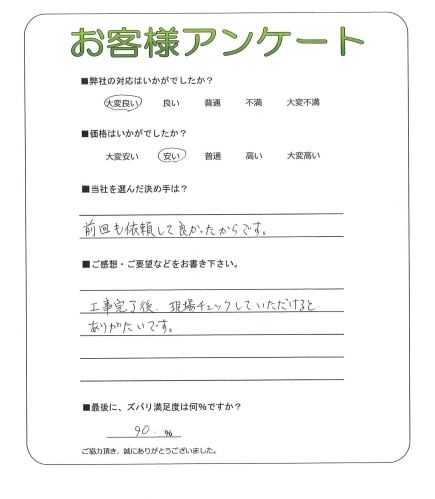 お客様アンケート
■弊社の対応はいかがでしたか？
大変良い 良い 普通 不満 大変不満
■価格はいかがでしたか？
大変安い 安い 普通 高い 大変高い
■当社を選んだ決め手は？
前回も依頼して良かったからです。
■ご感想・ご要望などをお書き下さい。
工事完了後、現場チェックしていただけると
ありがたいです。
■最後に、ズバリ満足度は何％ですか？
90. ％
ご協力頂き、誠にありがとうございました。